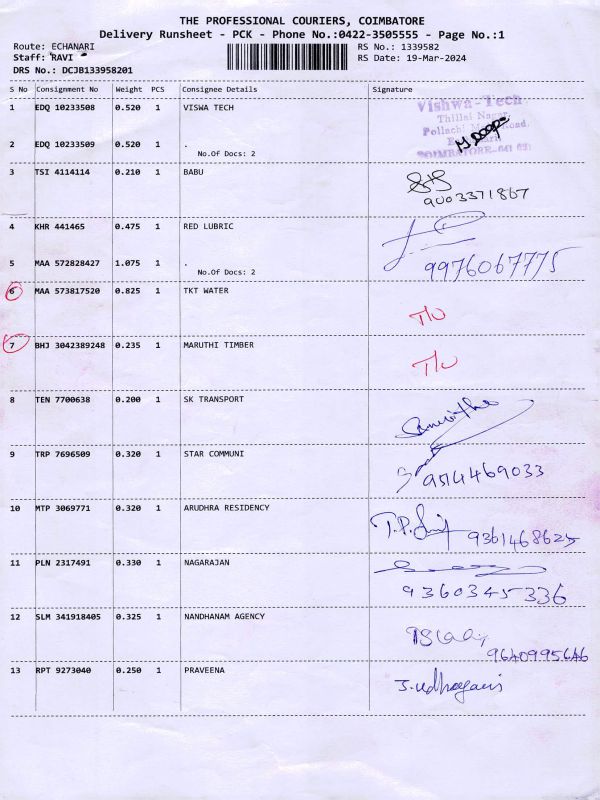 THE PROFESSIONAL COURIERS, COIMBATORE
Delivery Runsheet - PCK - Phone No.:0422-3505555 - Page No.:1
Route: ECHANARI RS No.: 1339582
Staff: RAVI RS Date: 19-Mar-2024
DRS No.: DCJB133958201
S No Consignment No Weight PCS Consignee Details Signature
1 EDQ 10233508 0.520 1 VISWA TECH
Vishwa-Tech
Thillai Nagar,
Pollachi Road,
2 EDQ 10233509 0.520 1 .
COIMBATORE-641 021
No.Of Docs: 2
3 TSI 4114114 0.210 1 BABU
9003371867
4 KHR 441465 0.475 1 RED LUBRIC
5 MAA 572828427 1.075 1 . 9976067775
No.Of Docs: 2
6 MAA 573817520 0.825 1 TKT WATER
T/U
7 BHJ 3042389248 0.235 1 MARUTHI TIMBER
T/U
8 TEN 7700638 0.200 1 SK TRANSPORT
9 TRP 7696509 0.320 1 STAR COMMUNI
9514469033
10 MTP 3069771 0.320 1 ARUDHRA RESIDENCY
9361468625
11 PLN 2317491 0.330 1 NAGARAJAN
9360345336
12 SLM 341918405 0.325 1 NANDHANAM AGENCY
9640995646
13 RPT 9273040 0.250 1 PRAVEENA
J.udhayani